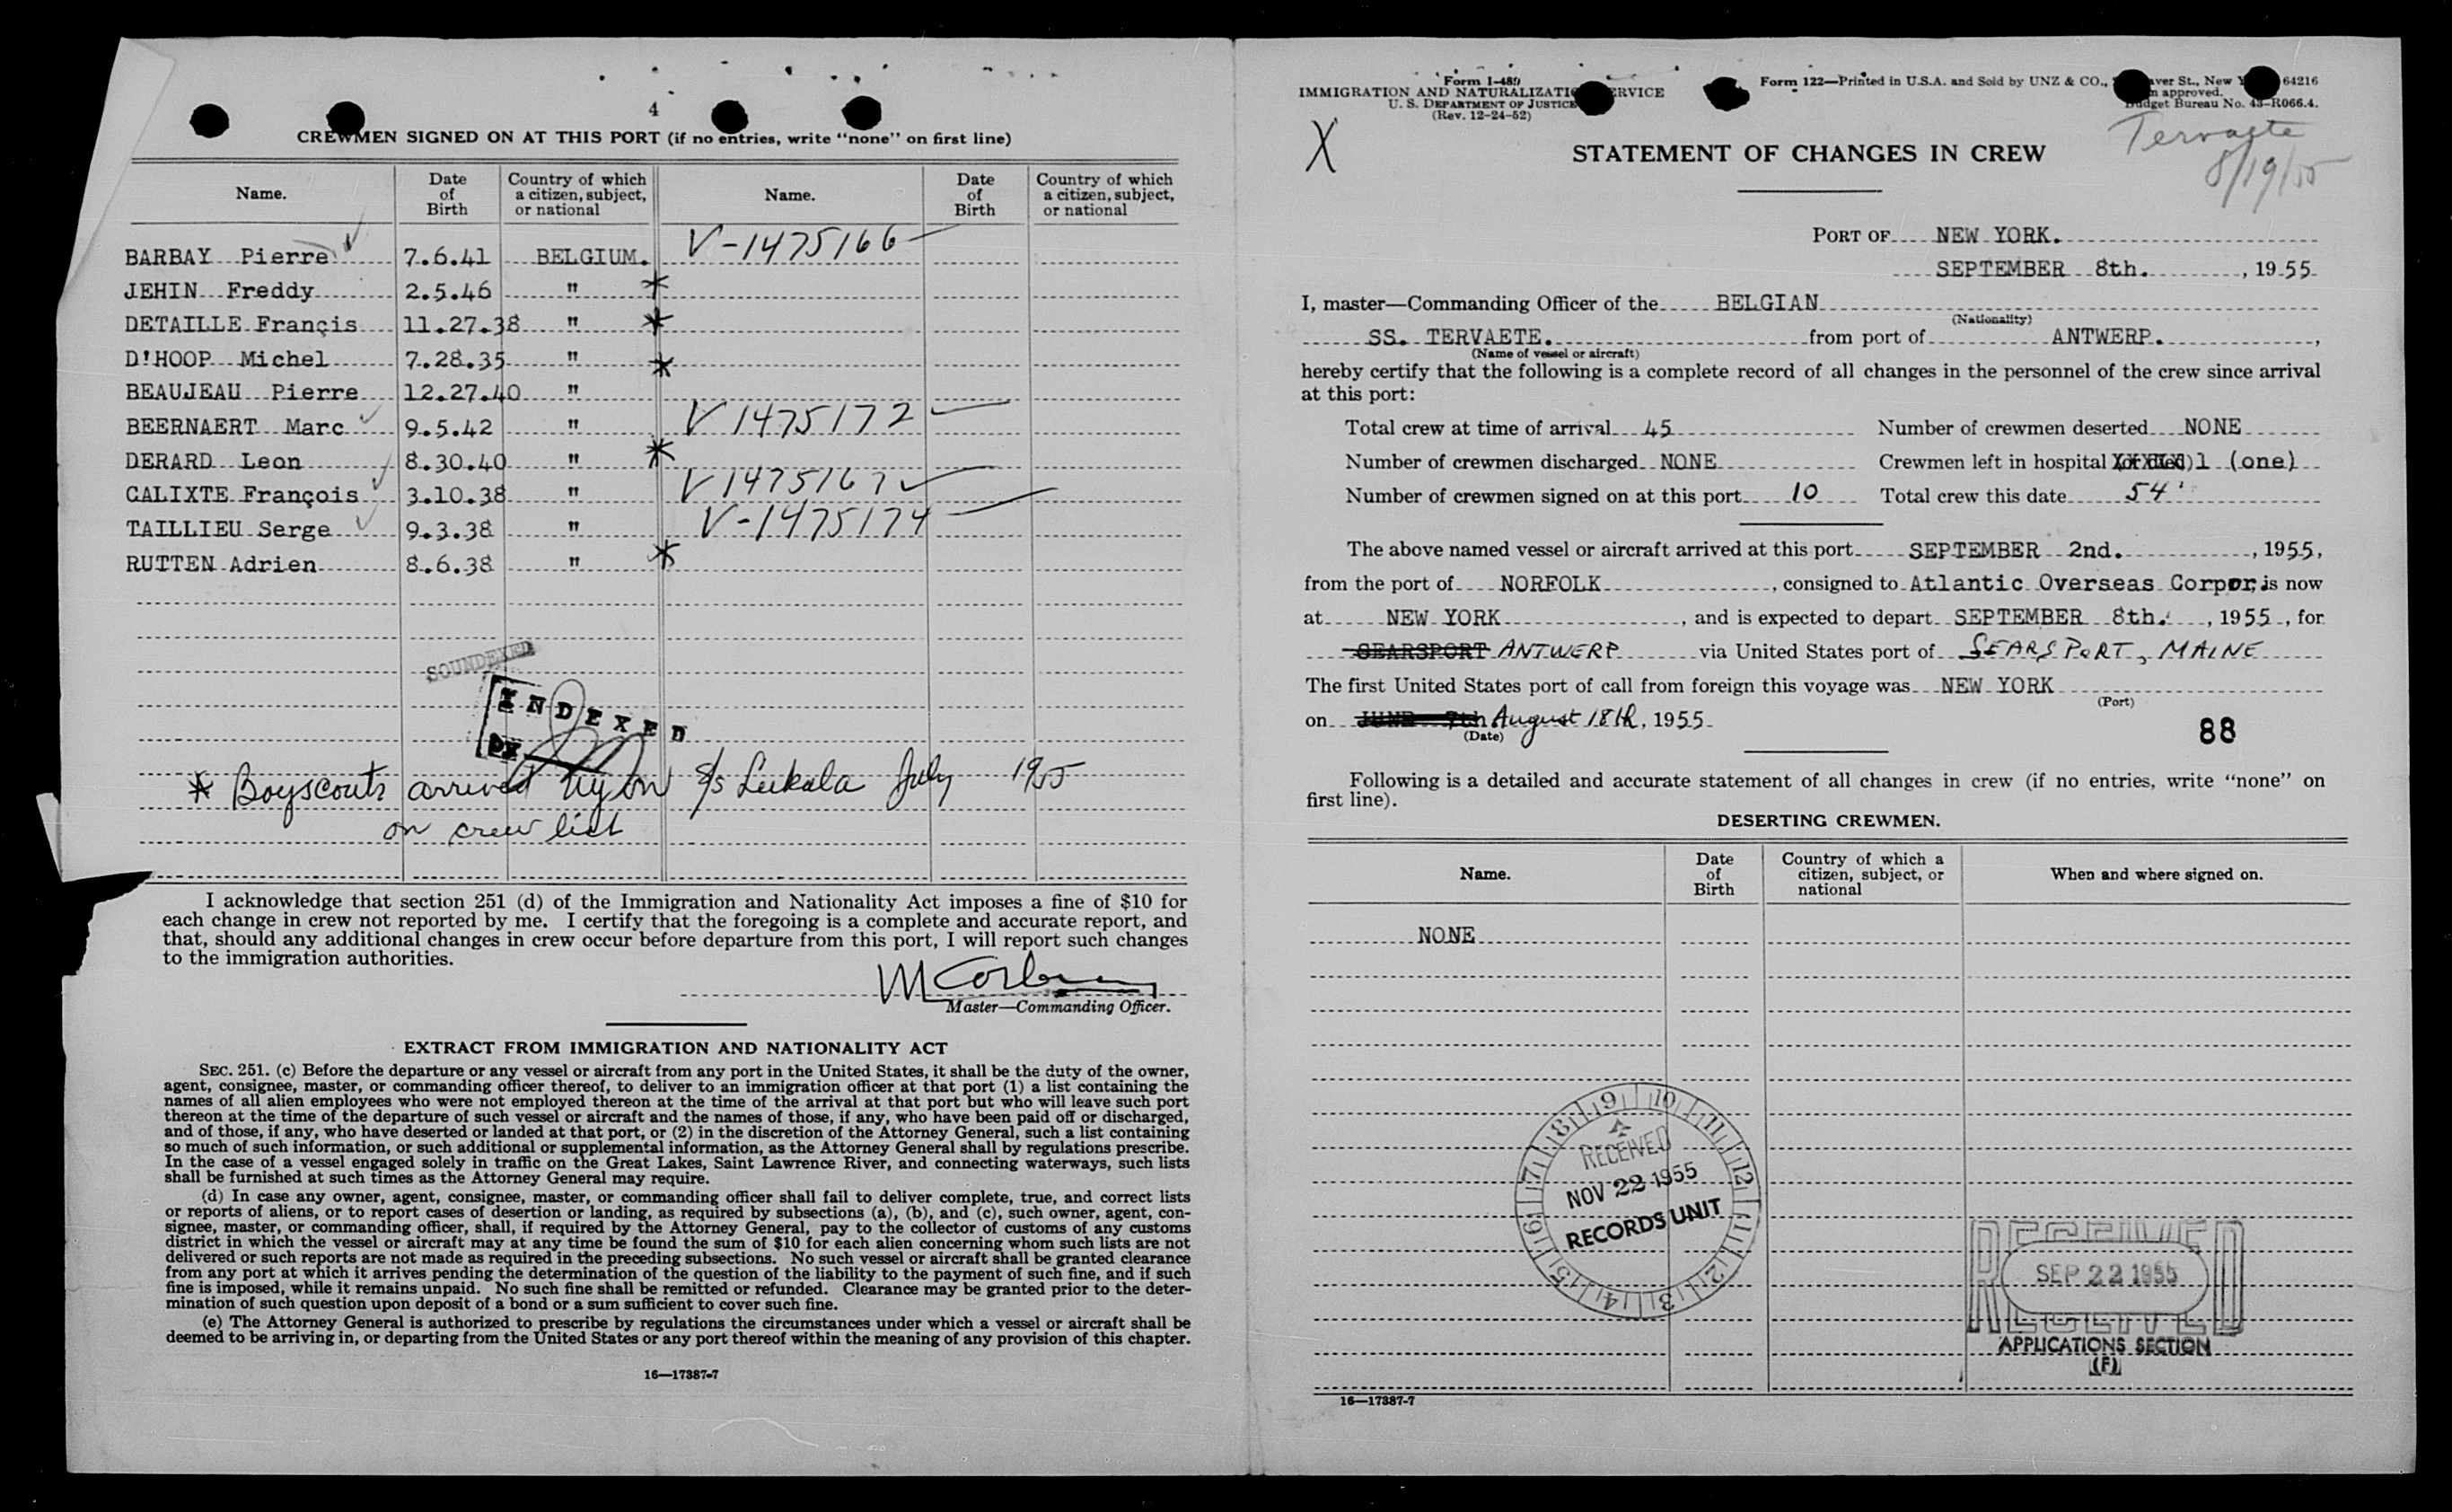 4
CREWMEN SIGNED ON AT THIS PORT (if no entries, write "none" on first line)
Name. Date of Birth Country of which a citizen, subject, or national Name. Date of Birth Country of which a citizen, subject, or national
BARBAY Pierre 7.6.41 BELGIUM. V-1475166
JEHIN Freddy 2.5.46 " *
DETAILLE Françis 11.27.38 " *
D'HOOP Michel 7.28.35 " *
BEAUJEAU Pierre 12.27.40 "
BEERNAERT Marc 9.5.42 " V 1475172
DERARD Leon 8.30.40 " *
CALIXTE François 3.10.38 " V 1475167
TAILLIEU Serge 9.3.38 " V-1475174
RUTTEN Adrien 8.6.38 " *
SOUNDEXED
INDEXED
* Boyscouts arrived NY on S/S Lukala July 1955
on crew list
I acknowledge that section 251 (d) of the Immigration and Nationality Act imposes a fine of $10 for
each change in crew not reported by me. I certify that the foregoing is a complete and accurate report, and
that, should any additional changes in crew occur before departure from this port, I will report such changes
to the immigration authorities.
Master—Commanding Officer.
EXTRACT FROM IMMIGRATION AND NATIONALITY ACT
SEC. 251. (c) Before the departure or any vessel or aircraft from any port in the United States, it shall be the duty of the owner,
agent, consignee, master, or commanding officer thereof, to deliver to an immigration officer at that port (1) a list containing the
names of all alien employees who were not employed thereon at the time of the arrival at that port but who will leave such port
thereon at the time of the departure of such vessel or aircraft and the names of those, if any, who have been paid off or discharged,
and of those, if any, who have deserted or landed at that port, or (2) in the discretion of the Attorney General, such a list containing
so much of such information, or such additional or supplemental information, as the Attorney General shall by regulations prescribe.
In the case of a vessel engaged solely in traffic on the Great Lakes, Saint Lawrence River, and connecting waterways, such lists
shall be furnished at such times as the Attorney General may require.
(d) In case any owner, agent, consignee, master, or commanding officer shall fail to deliver complete, true, and correct lists
or reports of aliens, or to report cases of desertion or landing, as required by subsections (a), (b), and (c), such owner, agent, con-
signee, master, or commanding officer, shall, if required by the Attorney General, pay to the collector of customs of any customs
district in which the vessel or aircraft may at any time be found the sum of $10 for each alien concerning whom such lists are not
delivered or such reports are not made as required in the preceding subsections. No such vessel or aircraft shall be granted clearance
from any port at which it arrives pending the determination of the question of the liability to the payment of such fine, and if such
fine is imposed, while it remains unpaid. No such fine shall be remitted or refunded. Clearance may be granted prior to the deter-
mination of such question upon deposit of a bond or a sum sufficient to cover such fine.
(e) The Attorney General is authorized to prescribe by regulations the circumstances under which a vessel or aircraft shall be
deemed to be arriving in, or departing from the United States or any port thereof within the meaning of any provision of this chapter.
16—17387-7
Form I-489
IMMIGRATION AND NATURALIZATION SERVICE
U. S. DEPARTMENT OF JUSTICE
(Rev. 12-24-52)
Form 122—Printed in U.S.A. and Sold by UNZ & CO., St., New 64216
approved.
Budget Bureau No. 43-R066.4.
X
Tervaete
8/19/55
STATEMENT OF CHANGES IN CREW
PORT OF NEW YORK.
SEPTEMBER 8th. , 1955
I, master—Commanding Officer of the BELGIAN
(Nationality)
SS. TERVAETE. from port of ANTWERP. ,
(Name of vessel or aircraft)
hereby certify that the following is a complete record of all changes in the personnel of the crew since arrival
at this port:
Total crew at time of arrival 45 Number of crewmen deserted NONE
Number of crewmen discharged NONE Crewmen left in hospital (or died) 1 (one)
Number of crewmen signed on at this port 10 Total crew this date 54
The above named vessel or aircraft arrived at this port SEPTEMBER 2nd. , 1955,
from the port of NORFOLK , consigned to Atlantic Overseas Corpor, is now
at NEW YORK , and is expected to depart SEPTEMBER 8th. , 1955, for
SEARSPORT ANTWERP via United States port of SEARSPORT, MAINE
The first United States port of call from foreign this voyage was NEW YORK
(Port)
on JUNE 7th August 18th, 1955
(Date)
88
Following is a detailed and accurate statement of all changes in crew (if no entries, write "none" on
first line).
DESERTING CREWMEN.
Name. Date of Birth Country of which a citizen, subject, or national When and where signed on.
NONE
9 10 11 12 1 2 3 4 5 6 7 8
RECEIVED
NOV 22 1955
RECORDS UNIT
RECEIVED
SEP 22 1955
RECEIVED
APPLICATIONS SECTION
(F)
16—17387-7